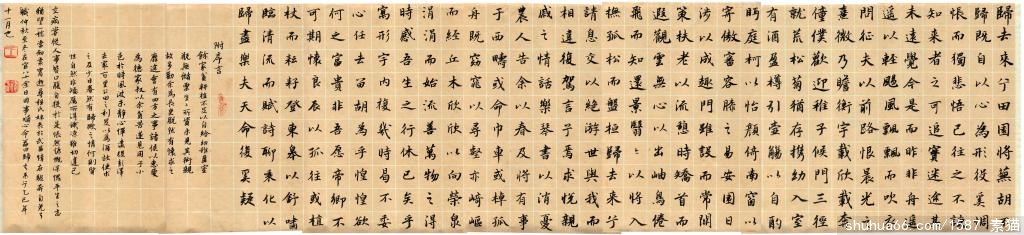 歸去来兮田園將蕪胡不
歸既自以心為形役奚惆
悵而獨悲悟已往之不諫
知来者之可追寔迷途其
未遠覺今是而昨非舟遥
遥以輕颺風飄飄而吹衣
問征夫以前路恨晨光之
熹微乃瞻衡宇載欣載奔
僮僕歡迎稚子候門三徑
就荒松菊猶存攜幼入室
有酒盈樽引壺觴以自酌
眄庭柯以怡顏倚南窗以
寄傲審容膝之易安園日
涉以成趣門雖設而常關
策扶老以流憩時矯首而
遐觀雲無心以出岫鳥倦
飛而知還景翳翳以將入
撫孤松而盤桓歸去来兮
請息交以絕遊世與我而
相違復駕言兮焉求悅親
戚之情話樂琴書以消憂
農人告余以春及將有事
於西疇或命巾車或棹孤
舟既窈窕以尋壑亦崎嶇
而經丘木欣欣以向榮泉
涓涓而始流善萬物之得
時感吾生之行休已矣乎
寓形宇内復幾時曷不委
心任去留胡為乎遑遑欲
何之富貴非吾願帝鄉不
可期懷良辰以孤往或植
杖而耘耔登東皋以舒嘯
臨清流而賦詩聊乘化以
歸盡樂夫天命復奚疑
附序言
餘家貧耕植不足以自給幼稚盈室
瓶無儲粟生生所資未見其術親
故多勸余為長吏脫然有懷求之
靡途會有四方之事諸侯以惠愛
為德家叔以余貧苦遂見用于小
邑於時風波未靜心憚遠役彭澤
去家百里公田之利足以為酒故便求
之及少日眷然有歸歟之情何則質
性自然非矯厲所得饑凍雖切違己
交病嘗從人事皆口腹自役於是悵然慷慨深愧平生之志
猶望一稔當斂裳宵逝尋程氏妹喪于武昌情在駿奔自免去
職仲秋至冬在官八十餘日因事順心命篇曰歸去来兮乙巳年
十一月也
shuhua66.com/1587/素猫